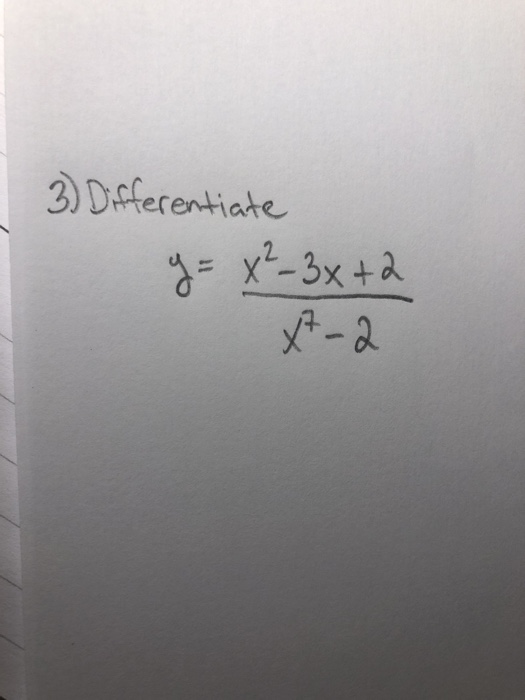 3) Differentiate
y = x² - 3x + 2
x⁷ - 2